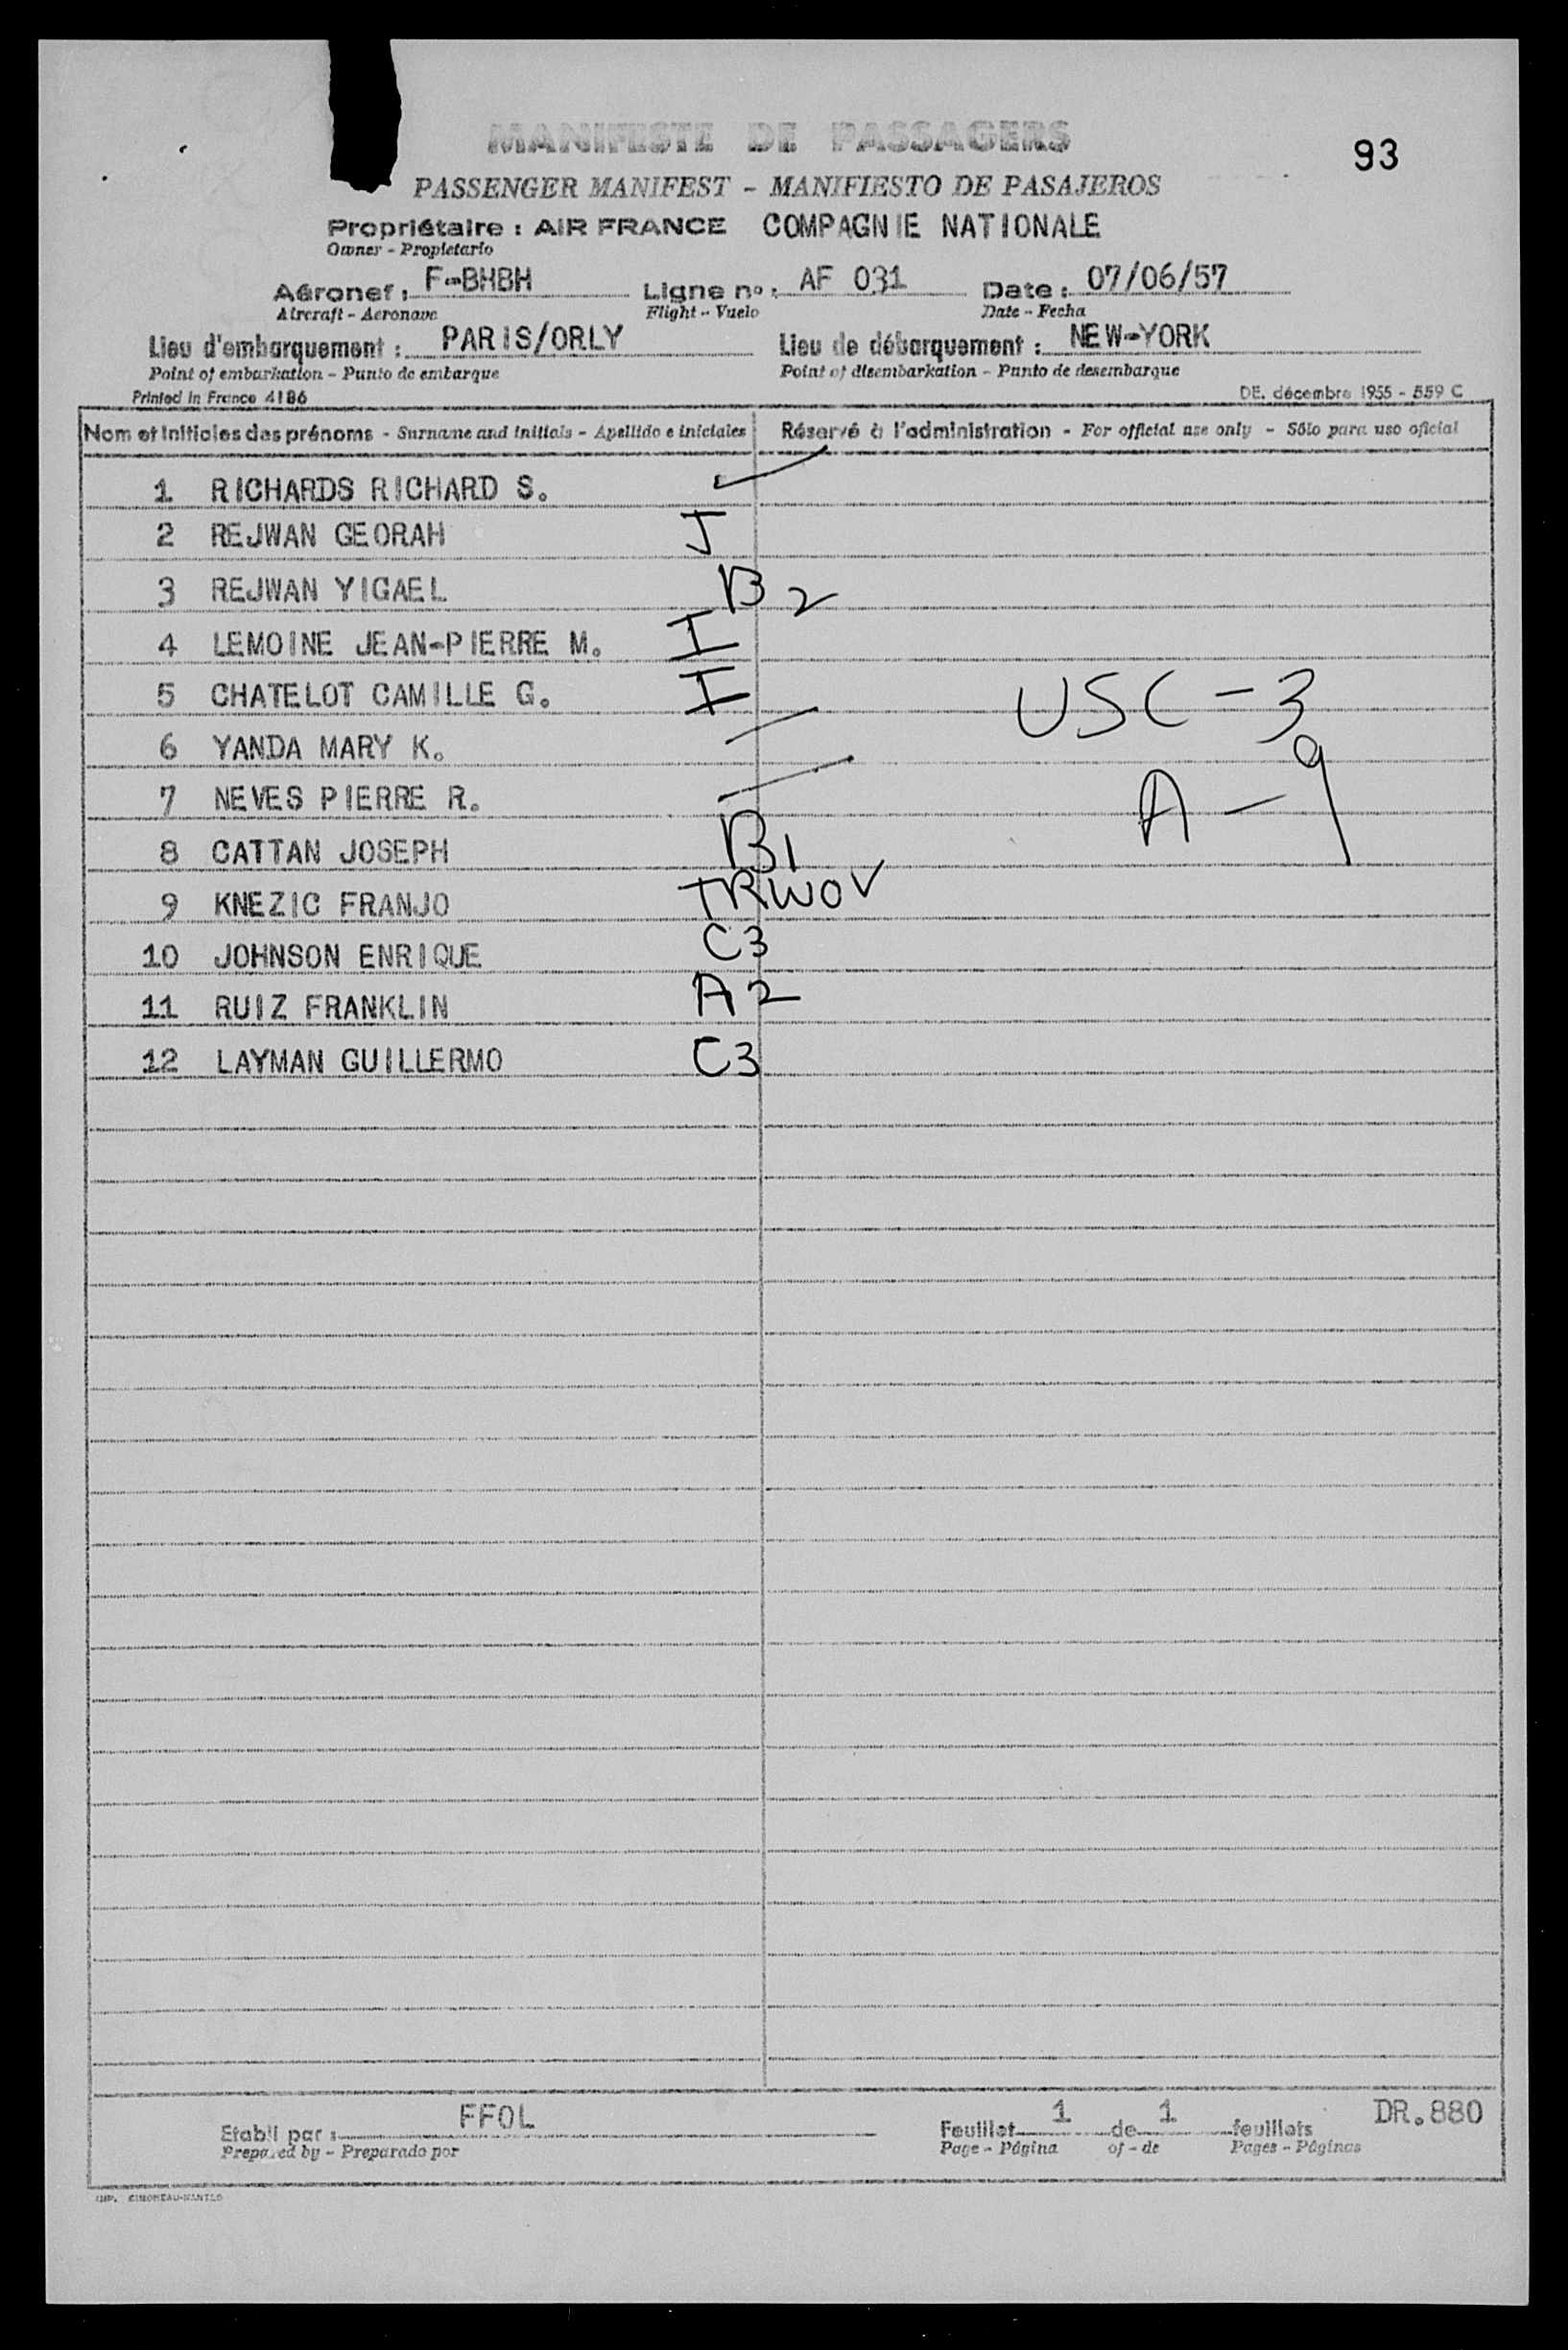 MANIFESTE DE PASSAGERS
93
PASSENGER MANIFEST - MANIFIESTO DE PASAJEROS
Propriétaire : AIR FRANCE COMPAGNIE NATIONALE
Owner - Propietario
Aéronef : F-BHBH Ligne nº : AF 031 Date : 07/06/57
Aircraft - Aeronave Flight - Vuelo Date - Fecha
Lieu d'embarquement : PARIS/ORLY Lieu de débarquement : NEW-YORK
Point of embarkation - Punto de embarque Point of disembarkation - Punto de desembarque
Printed in France 4186 DE. décembre 1955 - 559 C
Nom et initiales des prénoms - Surname and initials - Apellido e iniciales Réservé à l'administration - For official use only - Sólo para uso oficial
1 RICHARDS RICHARD S.
2 REJWAN GEORAH J
3 REJWAN YIGAEL B2
4 LEMOINE JEAN-PIERRE M. I
5 CHATELOT CAMILLE G. I USC-3
6 YANDA MARY K.
7 NEVES PIERRE R. A-9
8 CATTAN JOSEPH B1
9 KNEZIC FRANJO TRWOV
10 JOHNSON ENRIQUE C3
11 RUIZ FRANKLIN A2
12 LAYMAN GUILLERMO C3
Etabli par : FFOL Feuillet 1 de 1 feuillets DR.880
Prepared by - Preparado por Page - Página of - de Pages - Páginas
IMP.